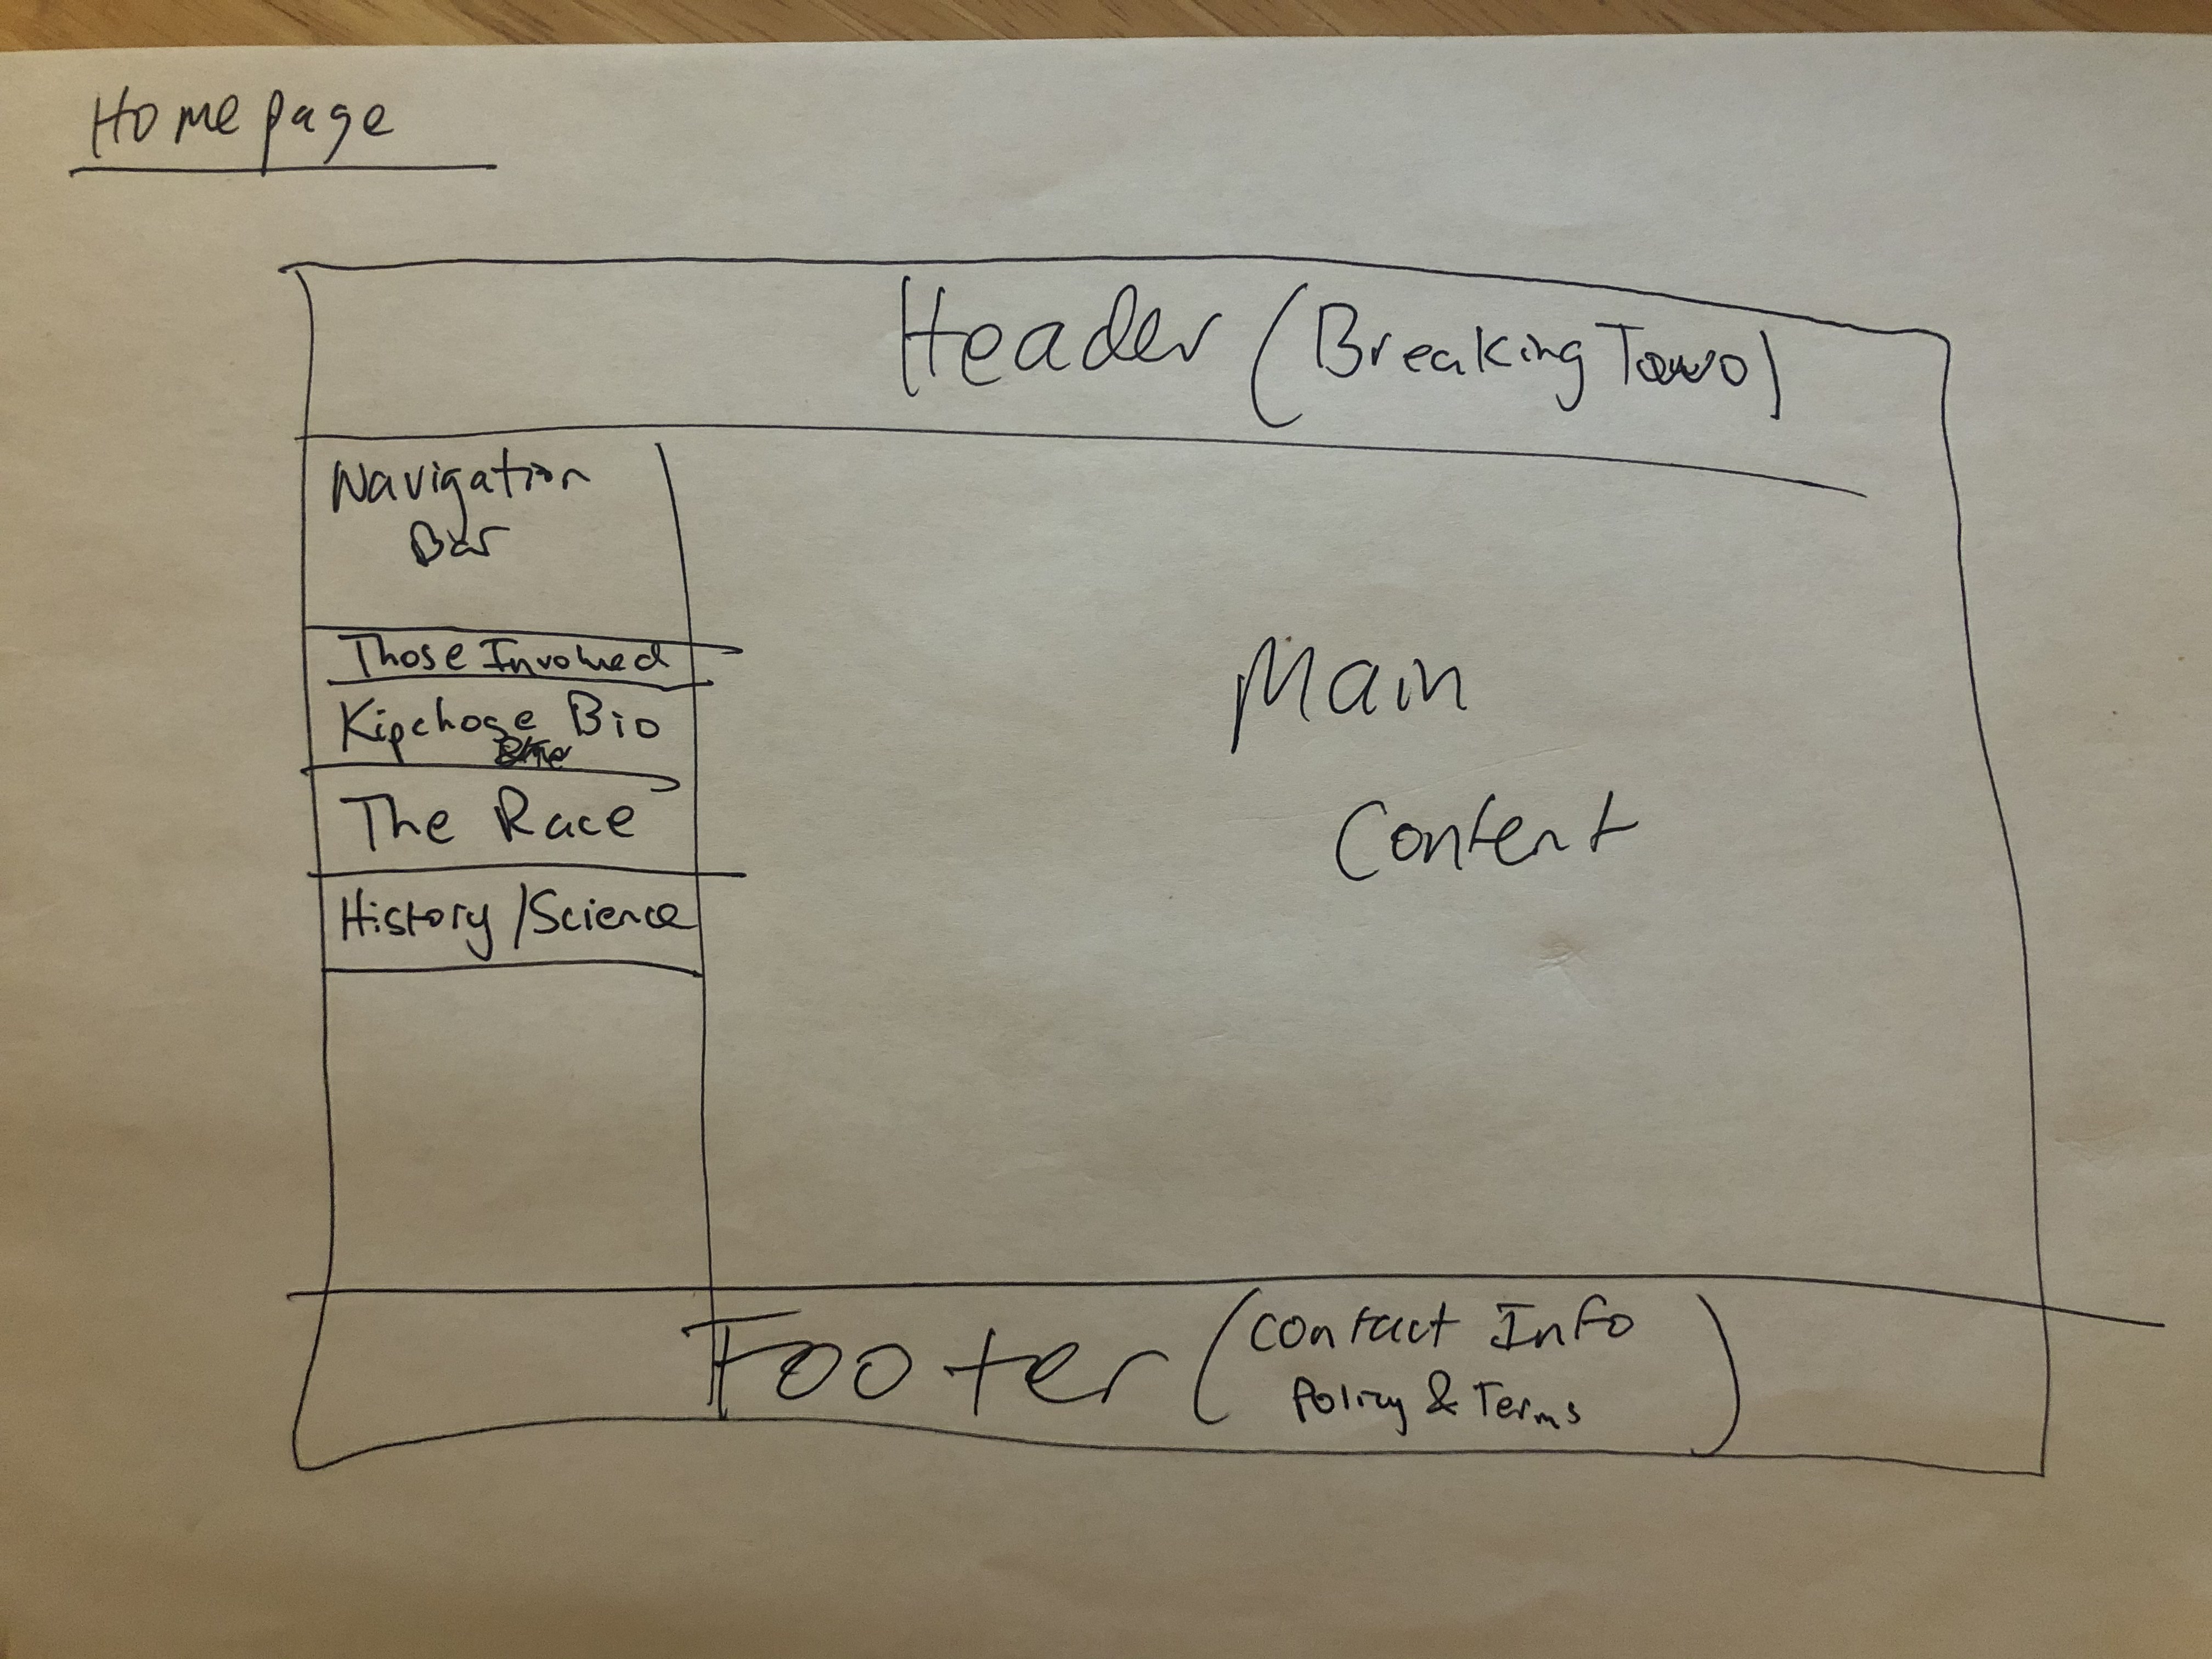 Homepage
Header (Breaking Two)
Navigation
Bar
Those Involved
Kipchoge Bio
The Race
History/Science
Main
Content
Footer (Contact Info
Policy & Terms)